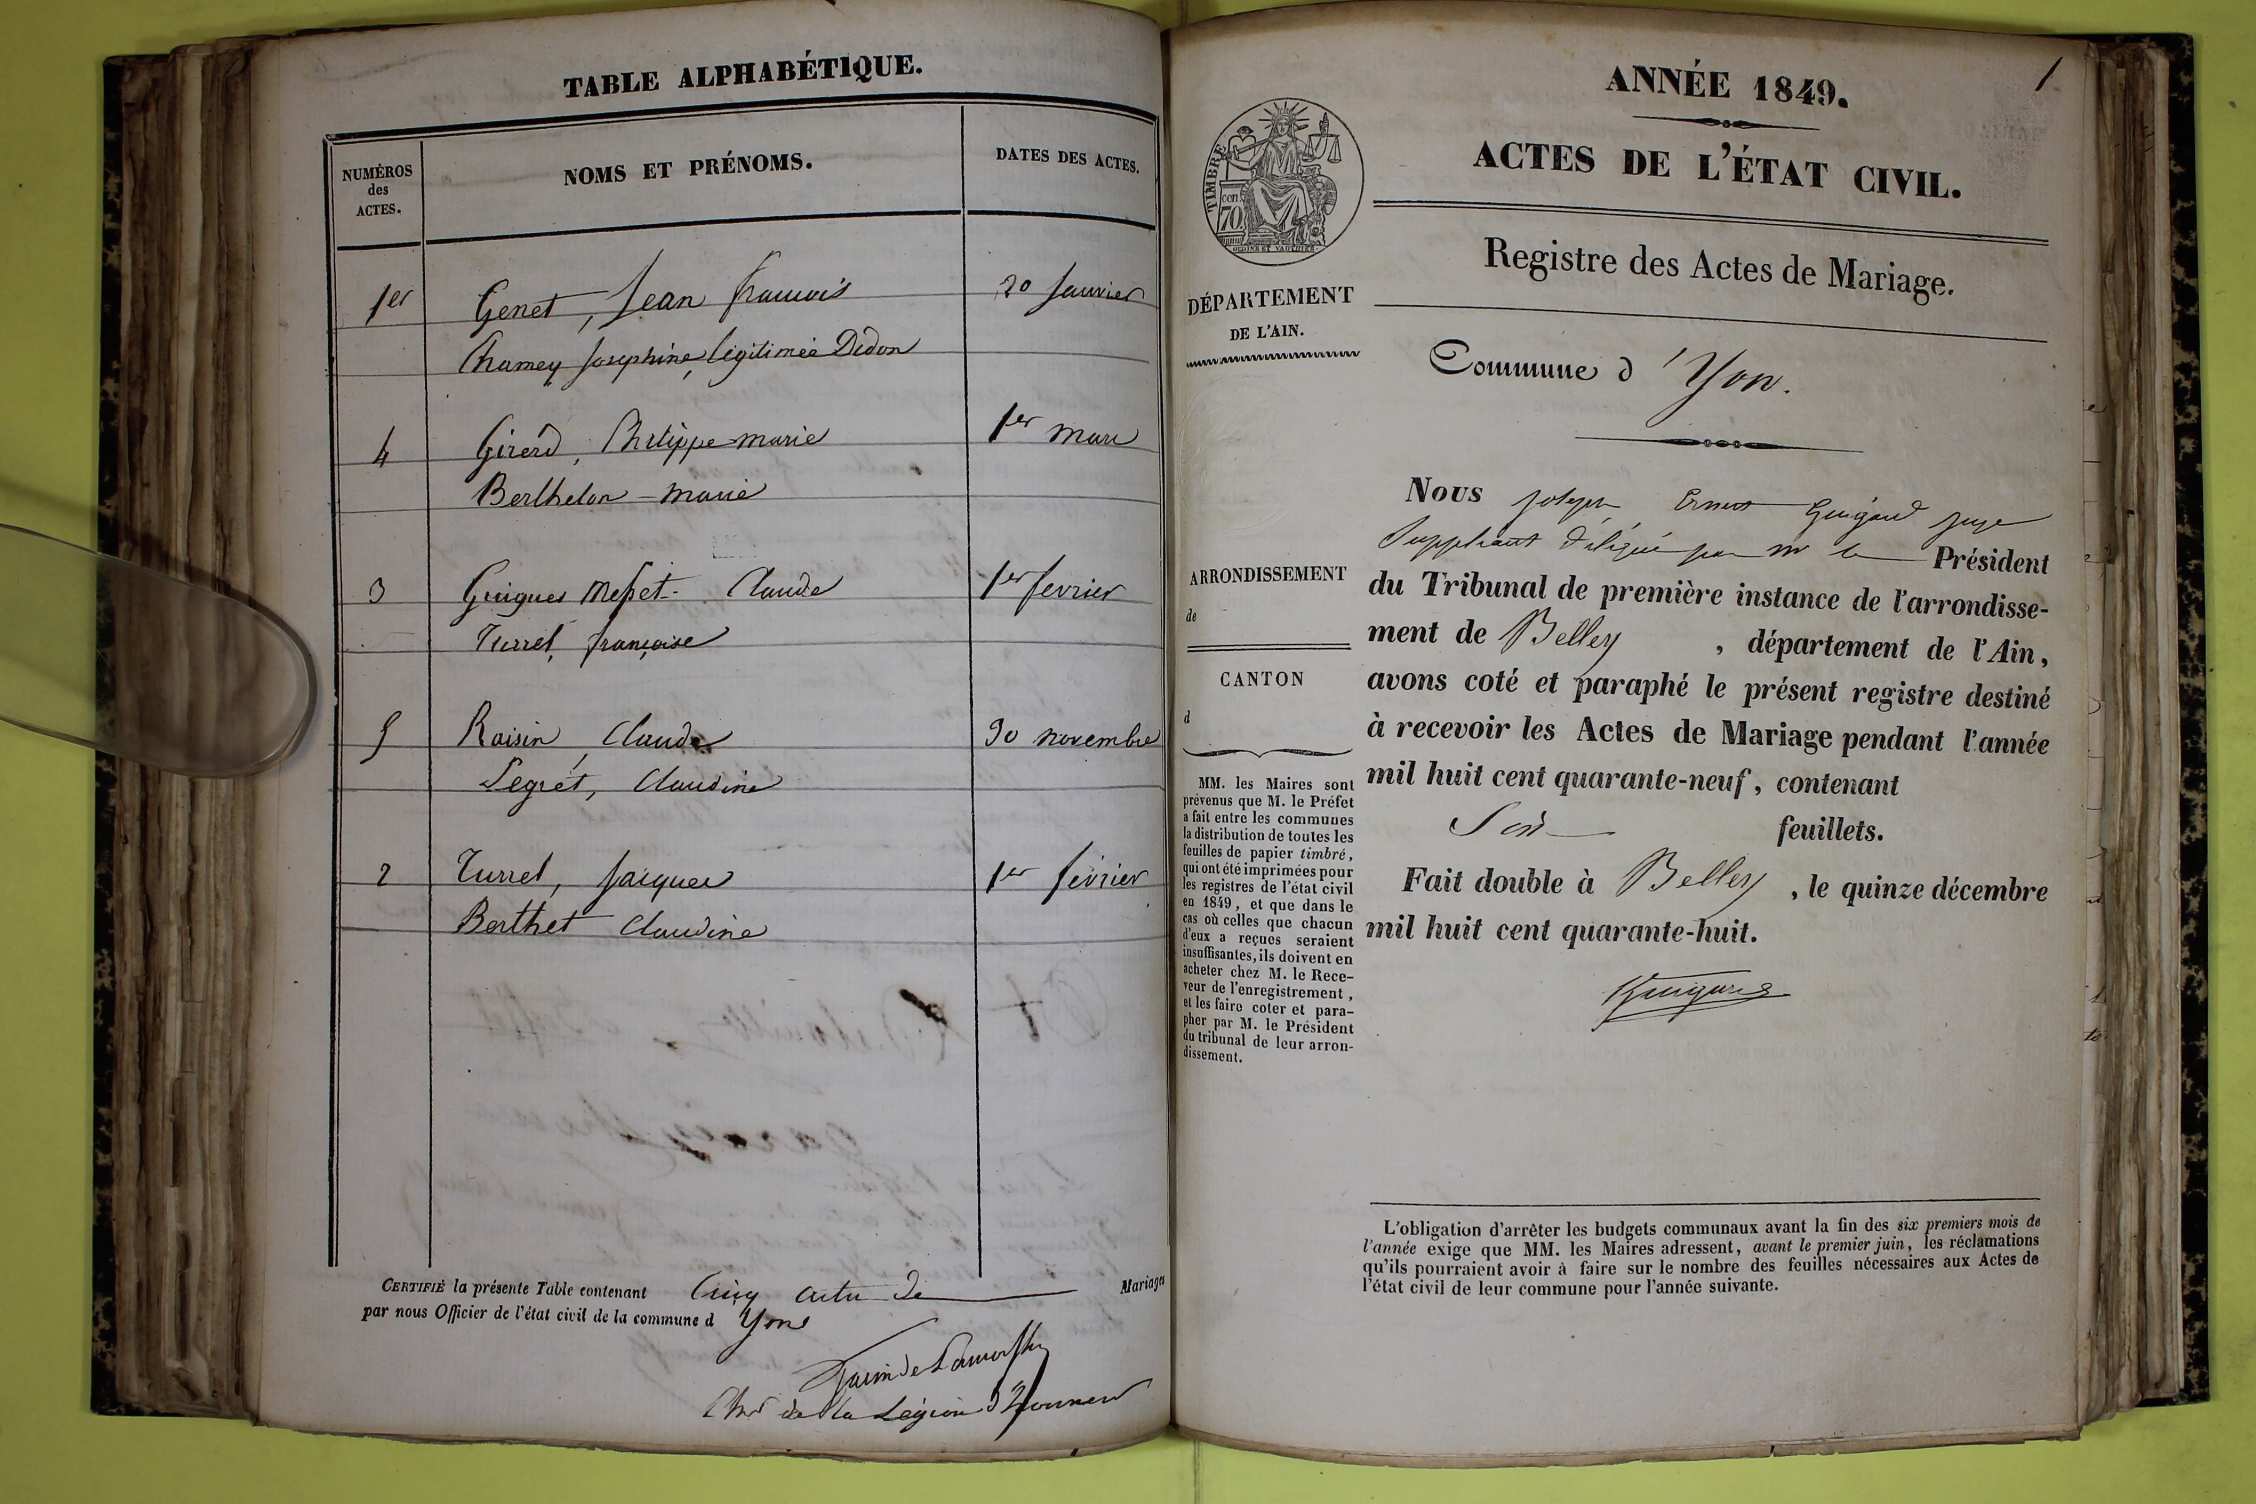 TABLE ALPHABÉTIQUE.
NUMÉROS
des
ACTES.
NOMS ET PRÉNOMS.
DATES DES ACTES.
1er Genet, Jean françois 20 Janvier
Chamey Josephine, légitimée Didon
4 Girerd, Philippe marie 1er mars
Berthelon - marie
3 Guigues Claude 1er fevrier
Turrel, françoise
5 Raisin, Claude 30 novembre
Legret, Claudine
2 Turrel, Jacques 1er février
Berthet Claudine
CERTIFIÉ la présente Table contenant Cinq actes de Mariages
par nous Officier de l'état civil de la commune d Yon
Chr de la Légion d'honneur
ANNÉE 1849.
1
ACTES DE L'ÉTAT CIVIL.
Registre des Actes de Mariage.
TIMBRE
cen
70
DÉPARTEMENT
DE L'AIN.
Commune d'Yon.
Nous Joseph Ernest Guigard juge
Suppléant délégué par mr le Président
du Tribunal de première instance de l'arrondisse-
ment de Belley, département de l'Ain,
avons coté et paraphé le présent registre destiné
à recevoir les Actes de Mariage pendant l'année
mil huit cent quarante-neuf, contenant
Six feuillets.
Fait double à Belley, le quinze décembre
mil huit cent quarante-huit.
Guigard
ARRONDISSEMENT
de
CANTON
d
MM. les Maires sont
prévenus que M. le Préfet
a fait entre les communes
la distribution de toutes les
feuilles de papier timbré,
qui ont été imprimées pour
les registres de l'état civil
en 1849, et que dans le
cas où celles que chacun
d'eux a reçues seraient
insuffisantes, ils doivent en
acheter chez M. le Rece-
veur de l'enregistrement,
et les faire coter et para-
pher par M. le Président
du tribunal de leur arron-
dissement.
L'obligation d'arrêter les budgets communaux avant la fin des six premiers mois de
l'année exige que MM. les Maires adressent, avant le premier juin, les réclamations
qu'ils pourraient avoir à faire sur le nombre des feuilles nécessaires aux Actes de
l'état civil de leur commune pour l'année suivante.